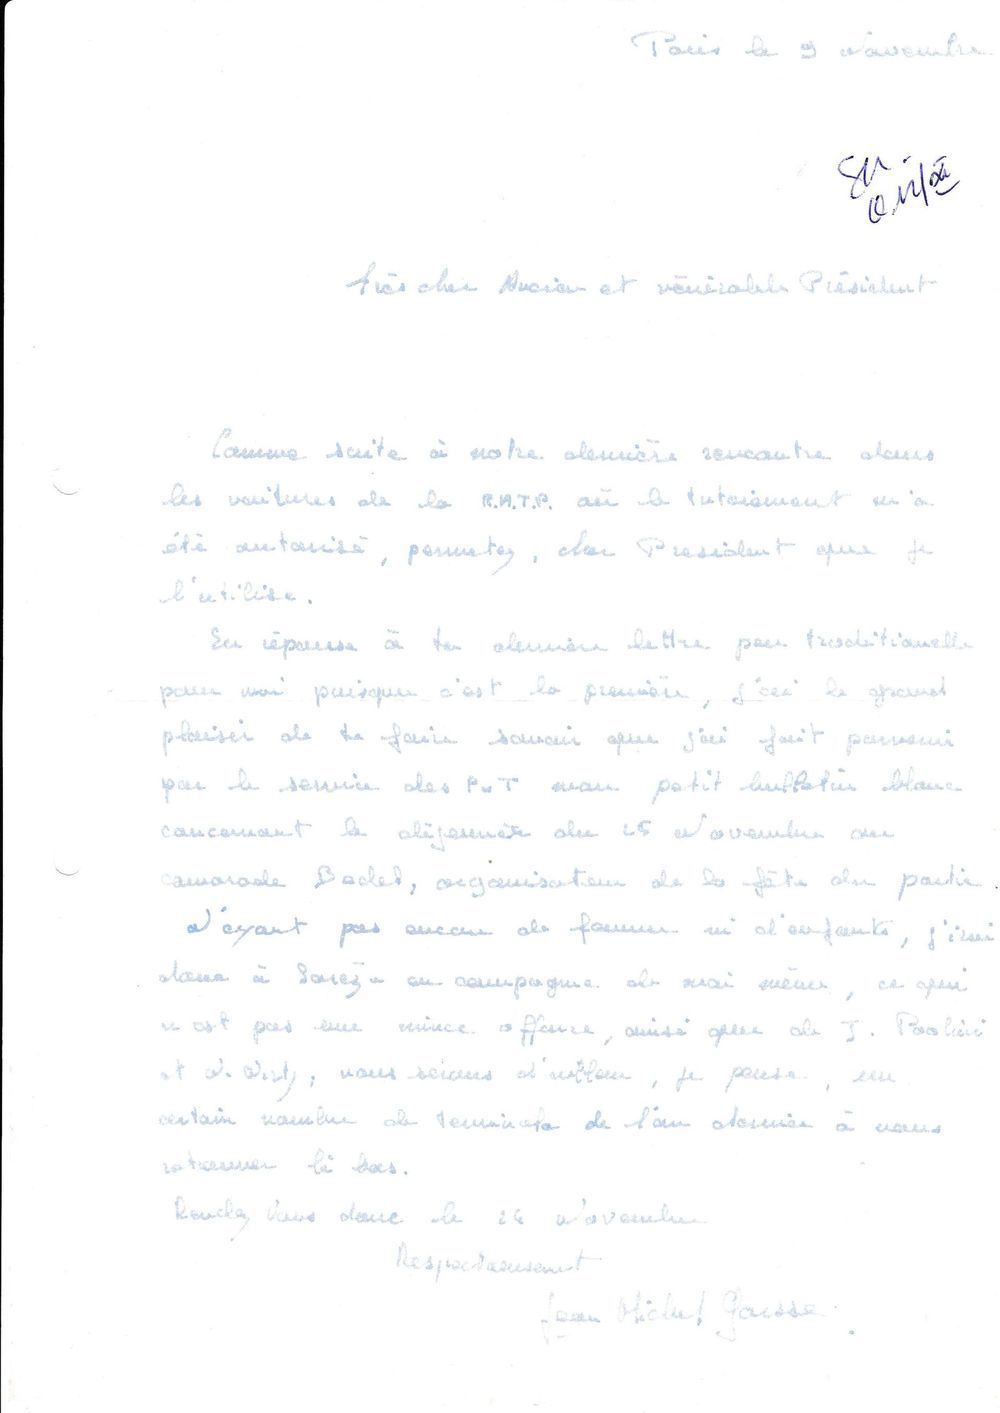 Paris le 9 Novembre
Très cher Ancien et vénérable Président
Comme suite à notre dernière rencontre dans
les voitures de la R.A.T.P. où le tutoiement m'a
été autorisé, permetez, cher President que je
l'utilise.
En réponse à ta dernière lettre peu traditionelle
pour moi puisque c'est la première, j'ai le grand
plaisir de te faire savoir que j'ai fait parvenir
par le service des P et T mon petit bulletin blanc
concernant le déjeuner du 26 Novembre au
camarade Bodet, organisateur de la fête du parti.
N'ayant pas encore de femme ni d'enfants, j'irai
donc à Sorèze en compagnie de moi même, ce qui
n'est pas une mince affaire, ainsi que de J. Paolini
et nous serons d'ailleurs, je pense, un
certain nombre de terminale de l'an dernier à nous
retrouver là bas.
Rendez Vous donc le 26 Novembre
Respectueusement
Jean Michel